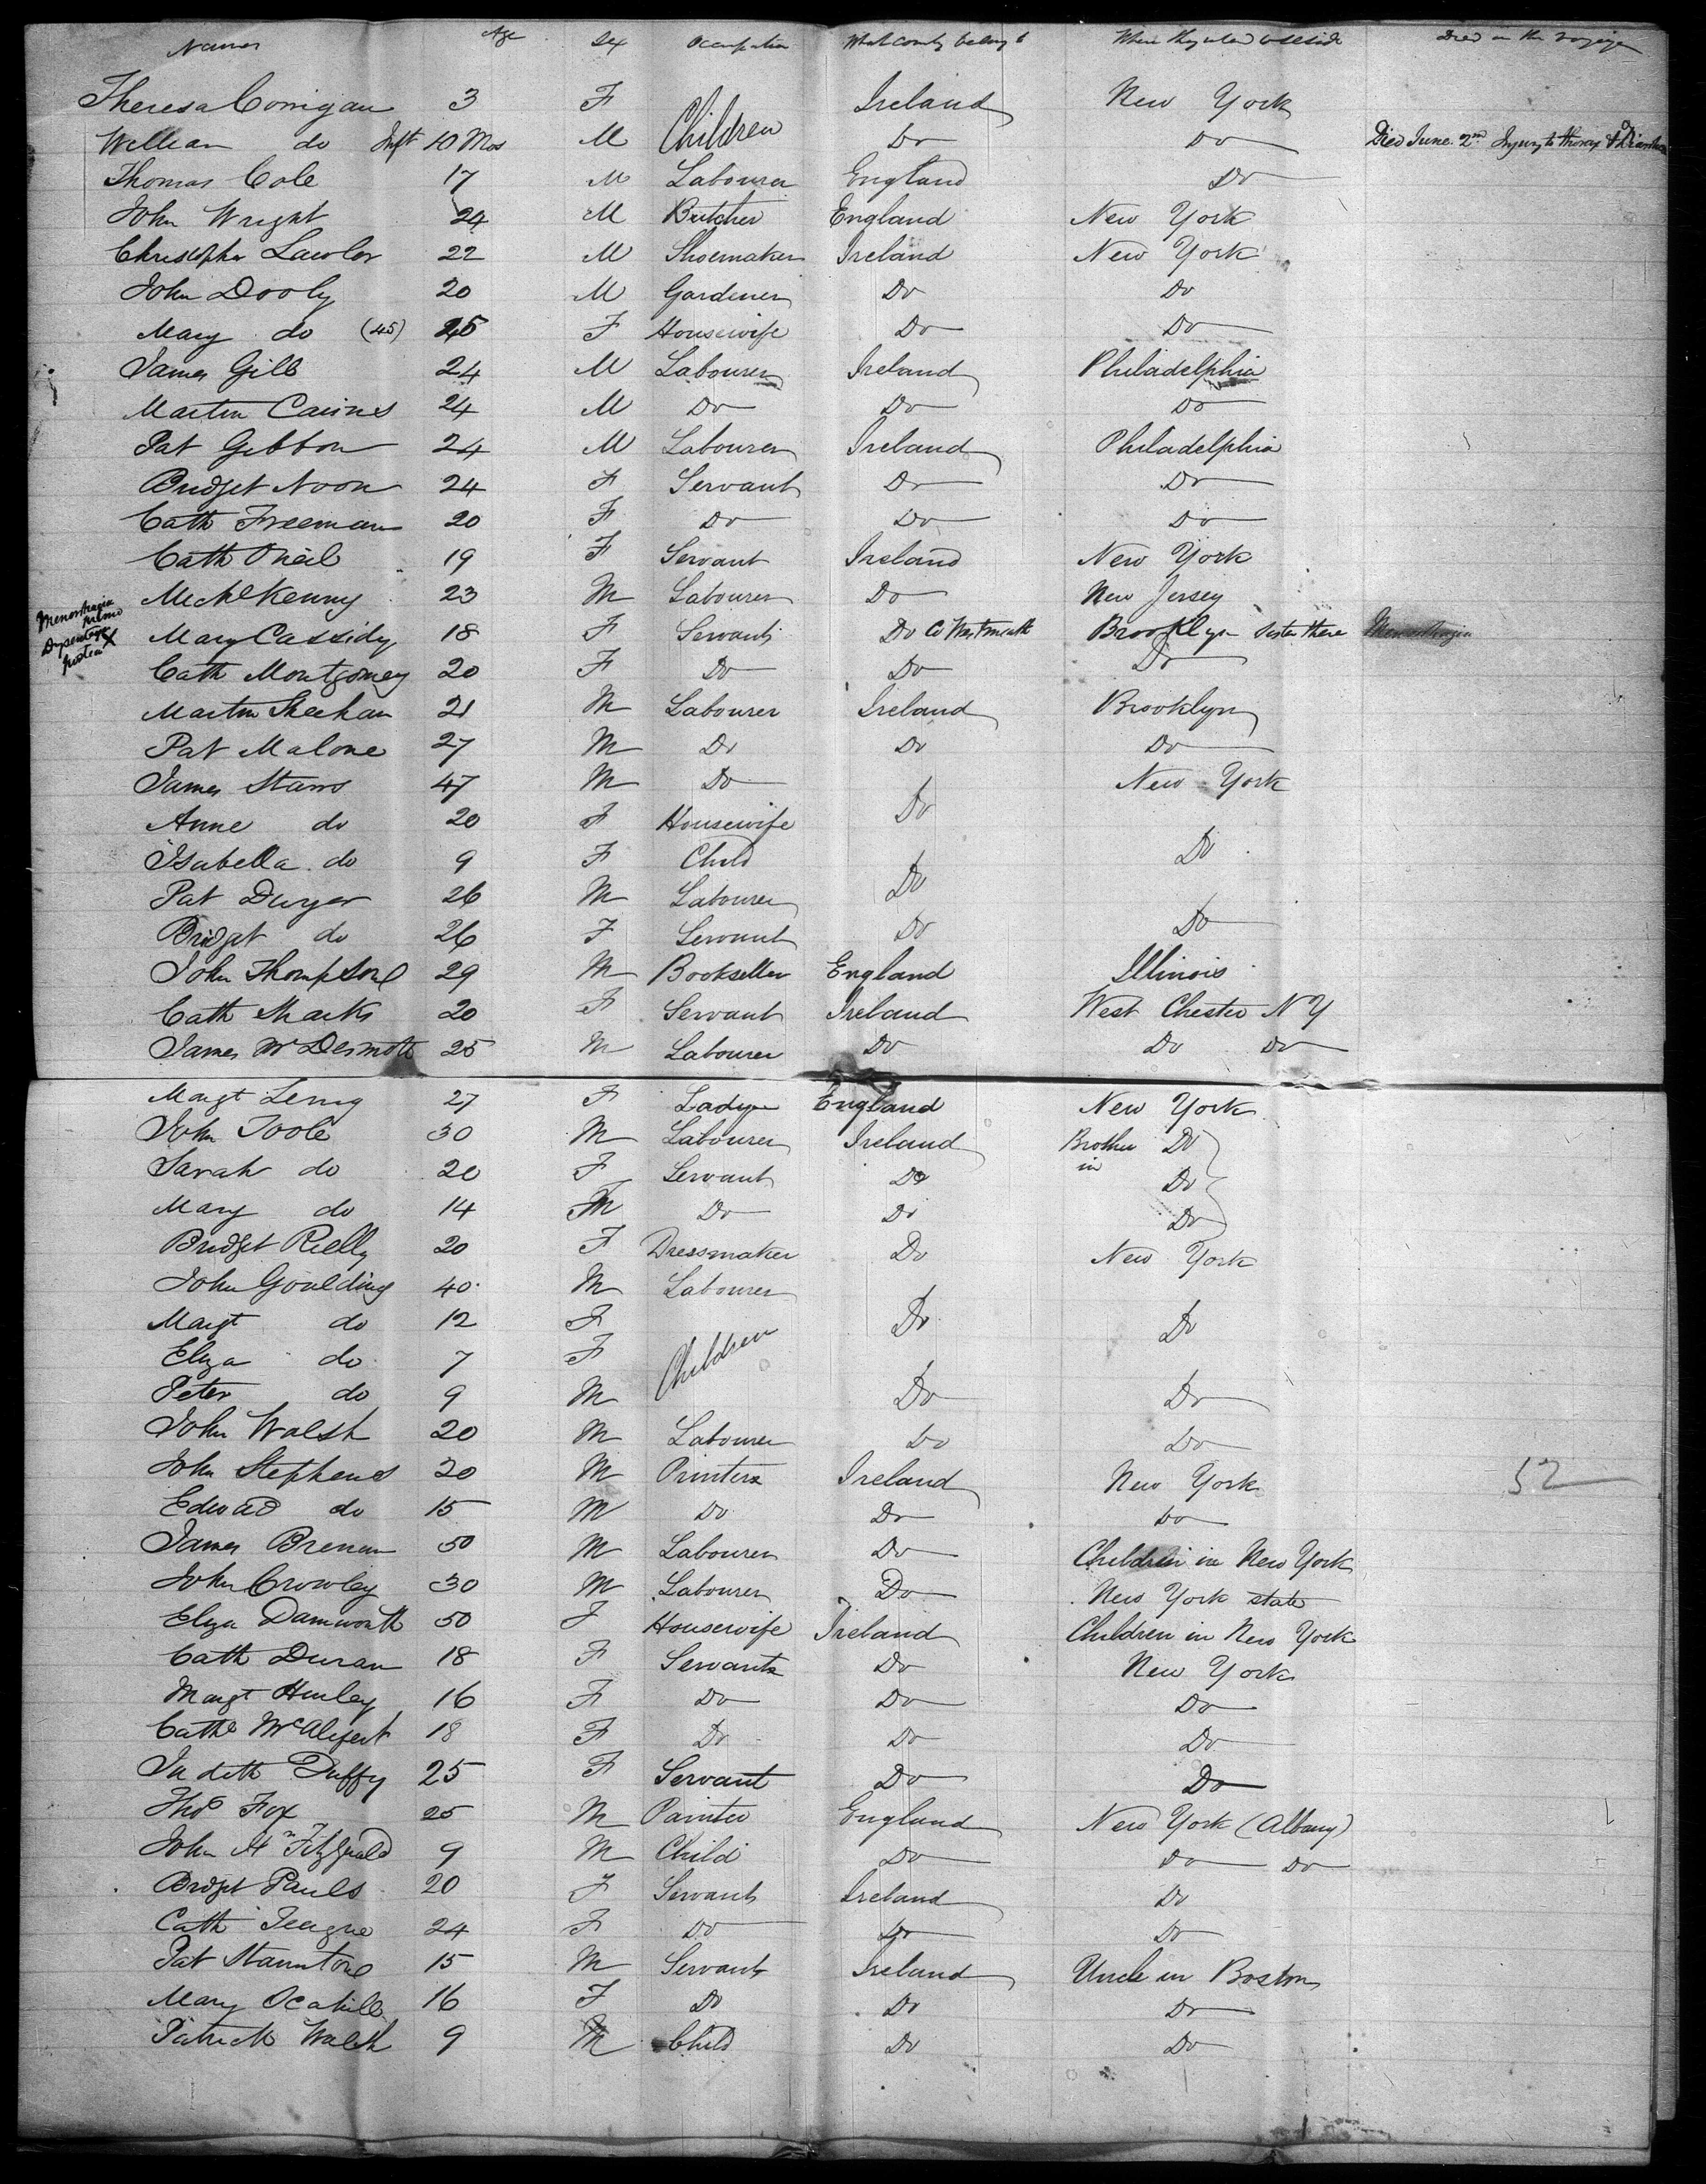 Names Age Sex Occupation What County belong to Where they intend to reside Died on the voyage
Theresa Corrigan 3 F Children Ireland New York
William do Inft 10 Mos M Do Do Died June 2nd Injury to thorax & Diarrhoea
Thomas Cole 17 M Labourer England Do
John Wright 24 M Butcher England New York
Christopher Lawlor 22 M Shoemaker Ireland New York
John Dooly 20 M Gardener Do Do
Mary do (45) 45 F Housewife Do Do
James Gill 24 M Labourer Ireland Philadelphia
Martin Cairns 24 M Do Do Do
Pat Gibbon 24 M Labourer Ireland Philadelphia
Bridget Noon 24 F Servant Do Do
Cath Freeman 20 F Do Do Do
Cath Oneil 19 F Servant Ireland New York
Michl Kenny 23 M Labourer Do New Jersey
Menorrhagia primo Dysentery postea X Mary Cassidy 18 F Servant Do Co Westmeath Brooklyn Sister there Menorrhagia
Cath Montgomery 20 F Do Do Do
Martin Sheehan 21 M Labourer Ireland Brooklyn
Pat Malone 27 M Do Do Do
James Starrs 47 M Do Do New York
Anne do 20 F Housewife
Isabella do 9 F Child Do Do
Pat Dwyer 26 M Labourer
Bridget do 26 F Servant Do Do
John Thompson 29 M Bookseller England Illinois
Cath Marks 20 F Servant Ireland West Chester N Y
James McDermott 25 M Labourer Do Do Do
Margt 27 F England New York
John Toole 30 M Labourer Ireland Brother in Do
Sarah do 20 F Servant Do Do
Mary do 14 F Do Do Do
Bridget Rielly 20 F Dressmaker Do New York
John Goulding 40 M Labourer
Margt do 12 F Children Do Do
Eliza do 7 F
Peter do 9 M Do Do
John Walsh 20 M Labourer Do Do
John Stephens 20 M Printers Ireland New York 52
Edward do 15 M Do Do Do
James Brenan 50 M Labourer Do Children in New York
John Crowley 30 M Labourer Do New York state
Eliza Damworth 50 F Housewife Ireland Children in New York
Cath Duran 18 F Servants Do New York
Margt Hurley 16 F Do Do Do
Cathe 18 F Do Do Do
Judith Duffy 25 F Servant Do Do
Thos Fox 25 M Painter England New York (Albany)
John Hn Fitzgerald 9 M Child Do Do Do
Bridget Pauls 20 F Servant Ireland Do
Cath Teague 24 F Do Do Do
Pat Staunton 15 M Servant Ireland Uncle in Boston
Mary Ocahill 16 F Do Do Do
Patrick Walsh 9 M Child Do Do